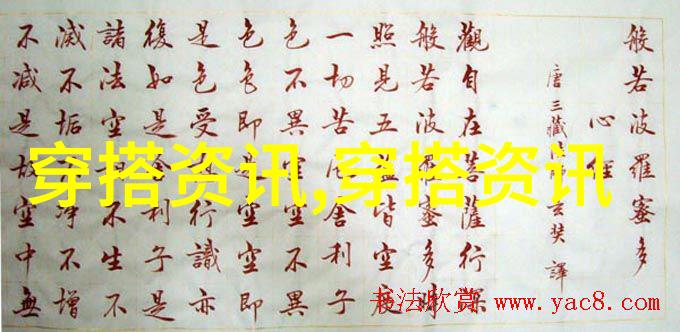 般若波羅蜜多
心經
唐三藏法師玄奘譯
觀自在菩薩行深
般若波羅蜜多時
照見五蘊皆空度
一切苦厄舍利子
色不異空空不異
色色即是空空即
是色受想行識亦
復如是舍利子是
諸法空相不生不
滅不垢不淨不增
不減是故空中無
穿搭资讯,穿搭资讯
书法欣赏 www.yac8.com